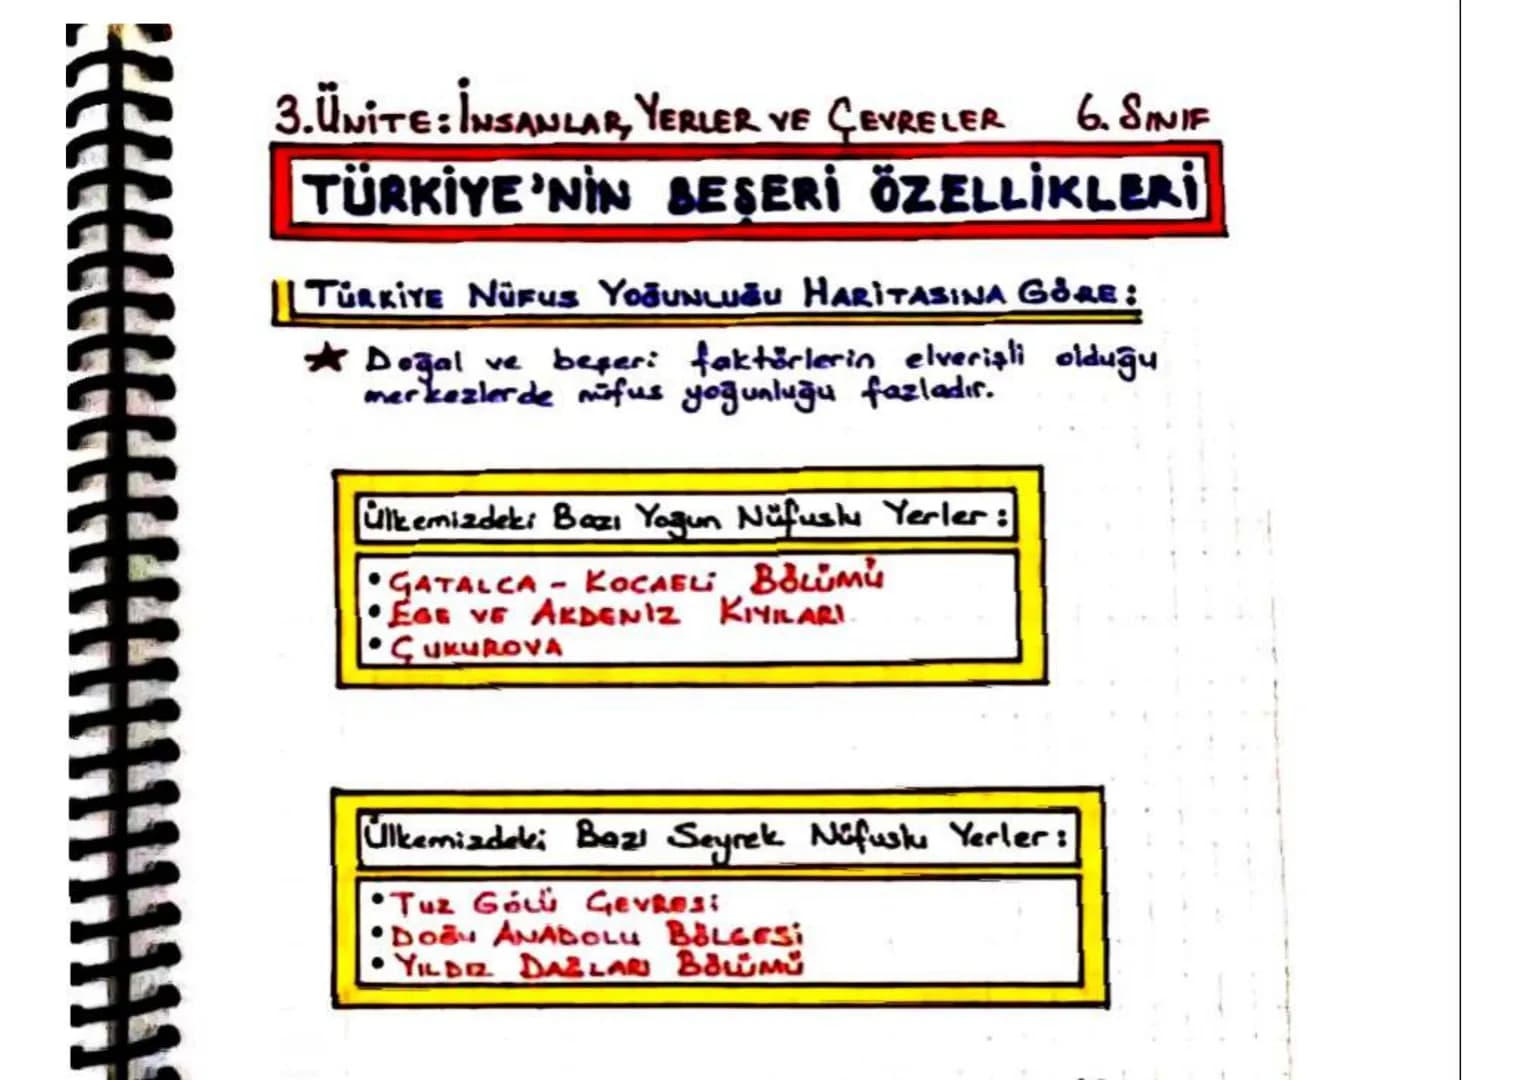 3.ÜNİTE: İNSANLAR, YERLER VE ÇEVRELER 6. SINIF
TÜRKİYE'NİN BEŞERİ ÖZELLİKLERİ
TÜRKİYE NÜFUS YOĞUNLUĞU HARİTASINA GÖRE:
★ Doğal ve beşeri faktörlerin elverişli olduğu
merkezlerde nüfus yoğunluğu fazladır.
Ülkemizdeki Bazı Yoğun Nüfuslu Yerler:
• ÇATALCA - KOCAELİ BÖLÜMÜ
• EGE VE AKDENİZ KIYILARI
• ÇUKUROVA
Ülkemizdeki Bazı Seyrek Nüfuslu Yerler:
• TUZ GÖLÜ ÇEVRESİ
• DOĞU ANADOLU BÖLGESİ
• YILDIZ DAĞLARI BÖLÜMÜ